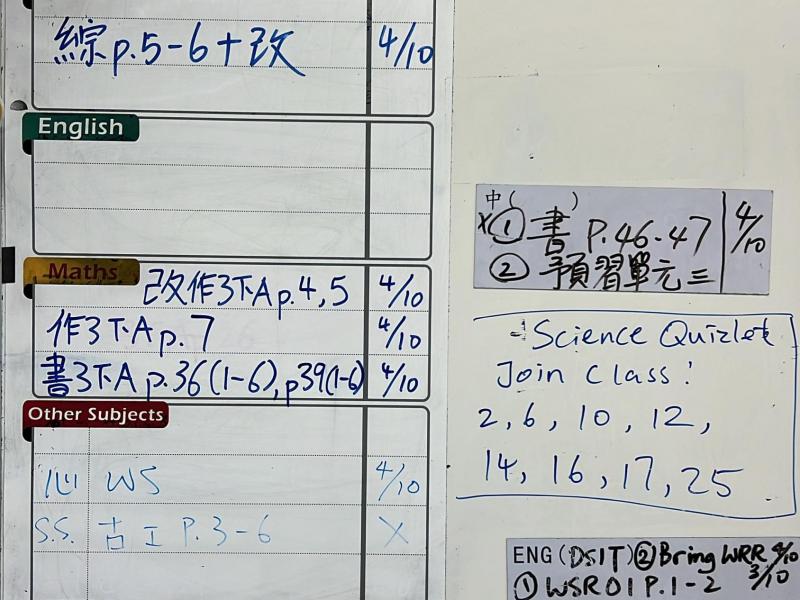 綜p.5-6+改 4/10
English
Maths
改作3下A p.4,5 4/10
作3下A p.7 4/10
書3下A p.36(1-6), p39(1-6) 4/10
Other Subjects
心 WS 4/10
S.S. 古工 P.3-6 X
中( )
X① 書 P.46-47 4/10
② 預習單元三
-Science Quizlet
Join Class:
2, 6, 10, 12,
14, 16, 17, 25
ENG (DSIT) ② Bring WRR 4/10
① WSR01 P.1-2 3/10